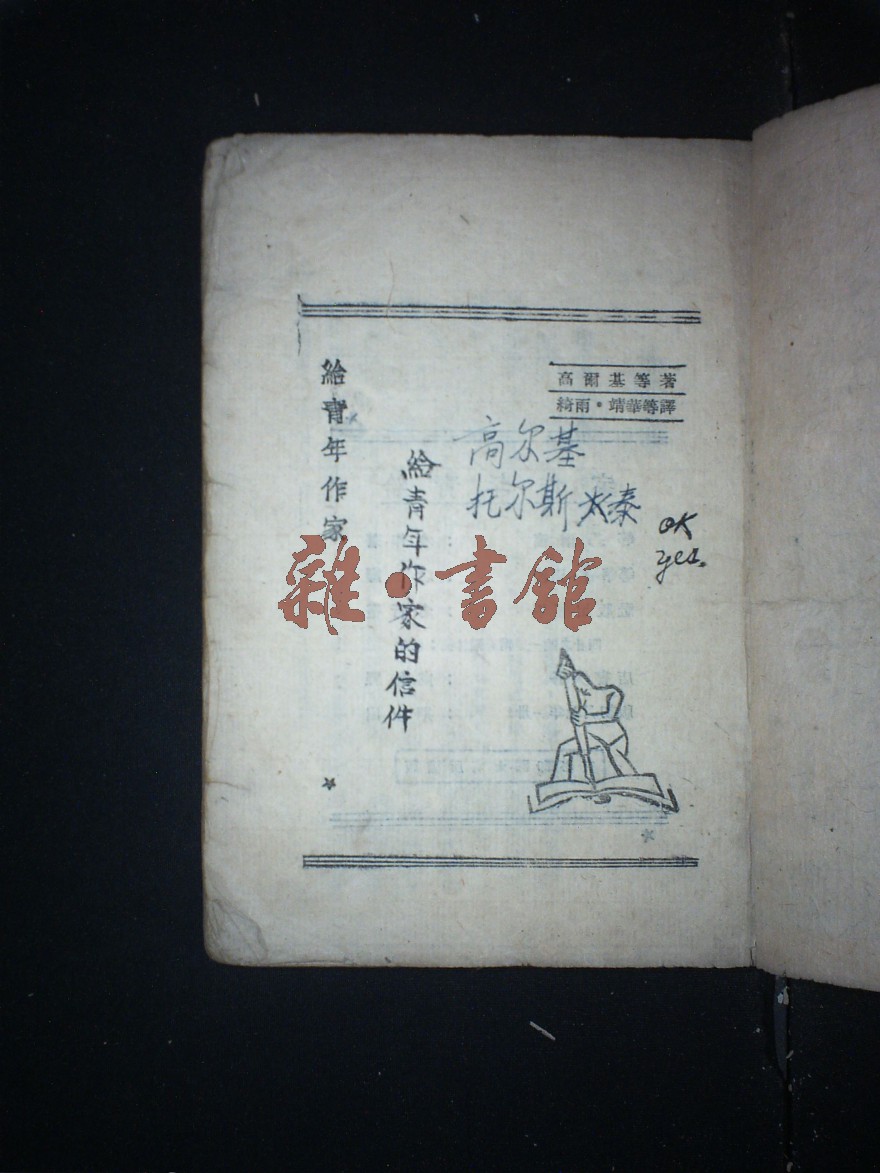 高爾基等著
綺雨·靖華等譯
給靑年作家
高尔基
托尔斯泰
給青年作家的信件
OK
yes.
雜·書館